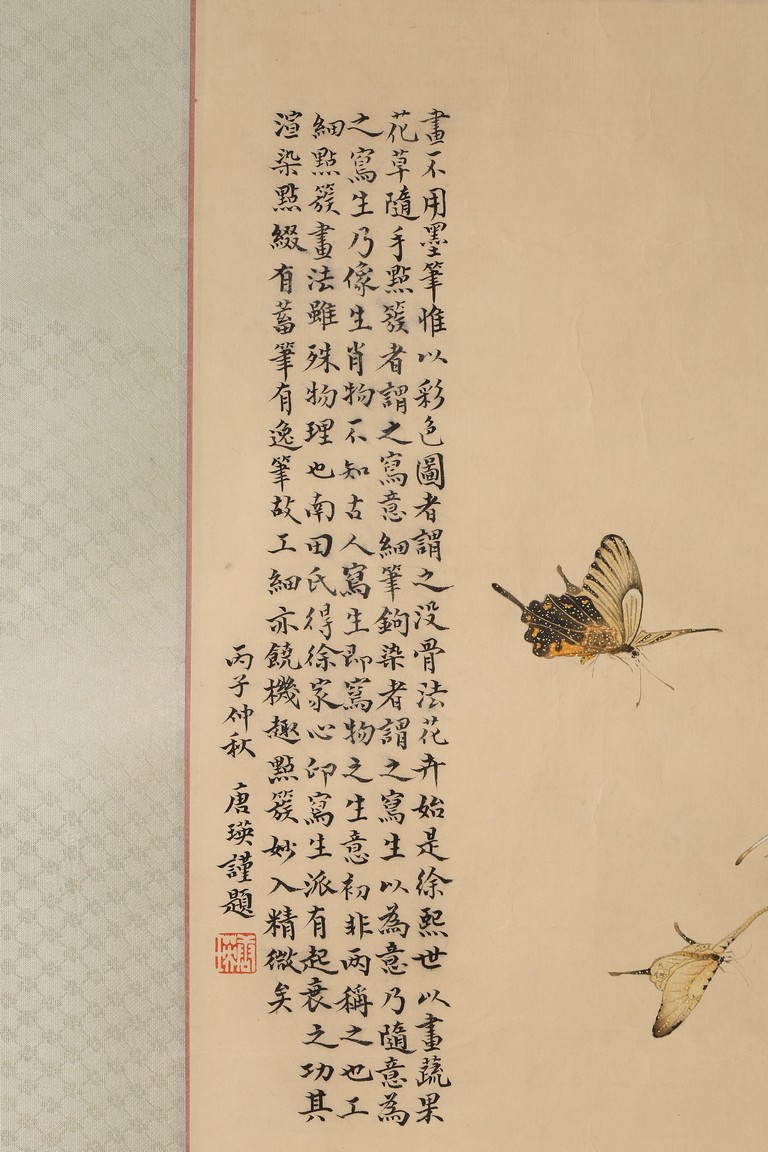 畫不用墨筆惟以彩色圖者謂之没骨法花卉始是徐熙世以畫蔬果
花草隨手點簇者謂之寫意細筆鉤染者謂之寫生以為意乃隨意為
之寫生乃像生肖物不知古人寫生即寫物之生意初非两稱之也工
細點簇畫法雖殊物理也南田氏得徐家心印寫生派有起衰之功其
渲染點綴有蓄筆有逸筆故工細亦饒機趣點簇妙入精微矣
丙子仲秋 唐瑛謹題
唐瑛